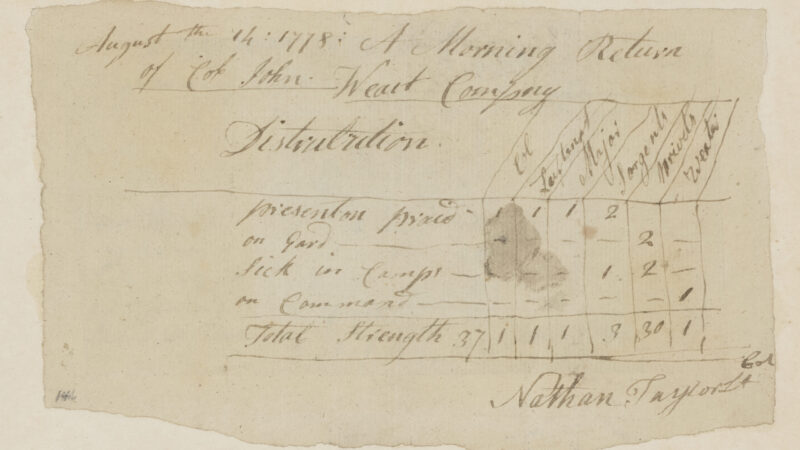 August the 14: 1778: A Morning Return
of Col John Weart Company
Distrutrition.
Col
Leutinnt
Major
Sargents
Waiter
presenton praid - 1 1 1 2
on Gard — - - - - 2 —
Sick in Camps — - - - 1 2 —
on Command — — - - - — 1
Total Strength 37 1 1 1 3 30 1
Col
Nathan Taylor Lt